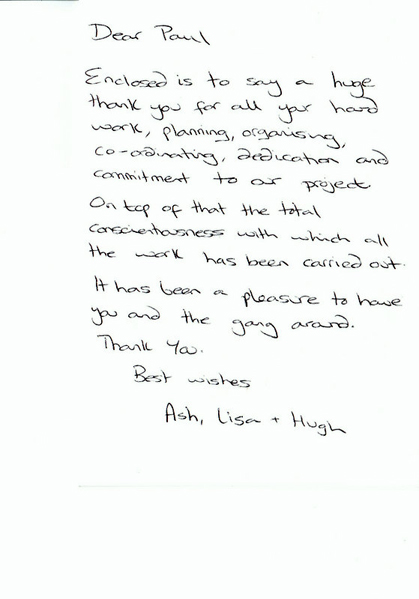 Dear Paul
Enclosed is to say a huge
thank you for all your hard
work, planning, organising,
co-ordinating, dedication and
commitment to our project.
On top of that the total
conscientiousness with which all
the work has been carried out.
It has been a pleasure to have
you and the gang around.
Thank You.
Best wishes
Ash, Lisa + Hugh